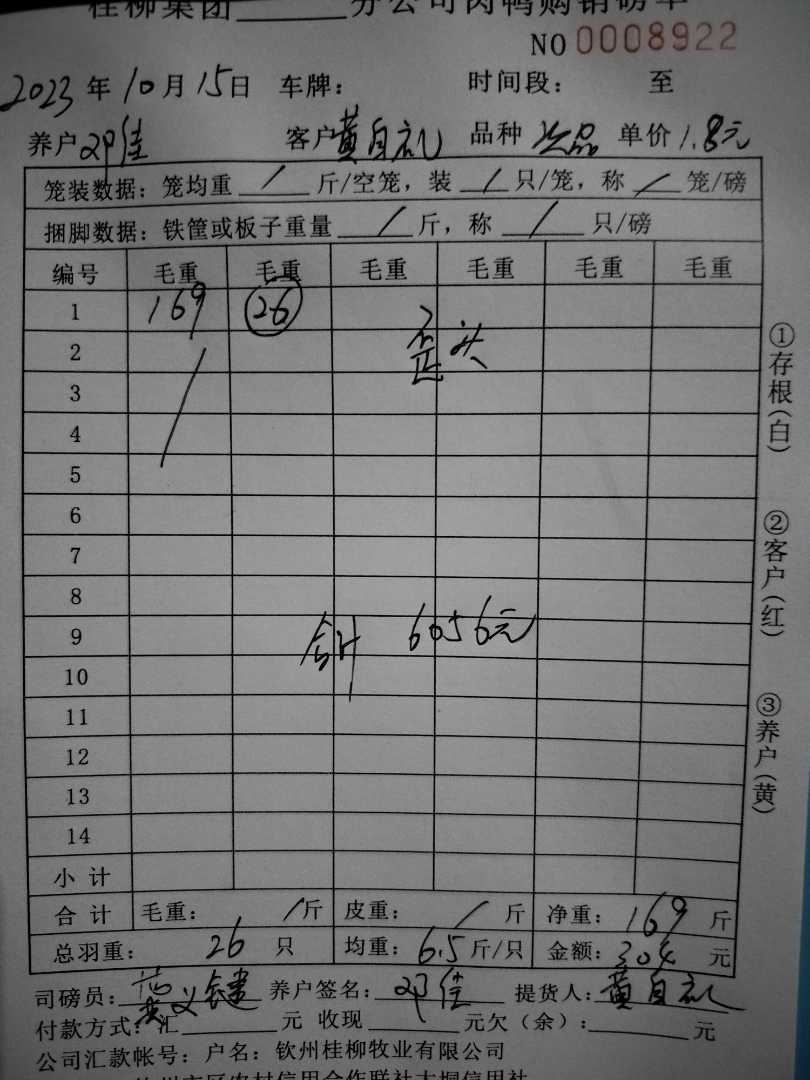 桂柳集团______分公司肉鸭购销磅单
NO 0008922
2023年10月15日 车牌： 时间段： 至
养户邓佳 客户黄自礼 品种次品 单价1.8元
笼装数据：笼均重 / 斤/空笼，装 / 只/笼，称 / 笼/磅
捆脚数据：铁筐或板子重量 / 斤，称 / 只/磅
编号 毛重 毛重 毛重 毛重 毛重 毛重
1 169 26
2 歪头
3
4
5
6
7
8
9 合计 6056元
10
11
12
13
14
小计
合计 毛重： / 斤 皮重： / 斤 净重：169斤
总羽重： 26 只 均重：6.5斤/只 金额：304元
司磅员： 义键 养户签名：邓佳 提货人：黄自礼
付款方式：汇______元 收现______元欠（余）：______元
公司汇款帐号：户名：钦州桂柳牧业有限公司
①存根(白)
②客户(红)
③养户(黄)